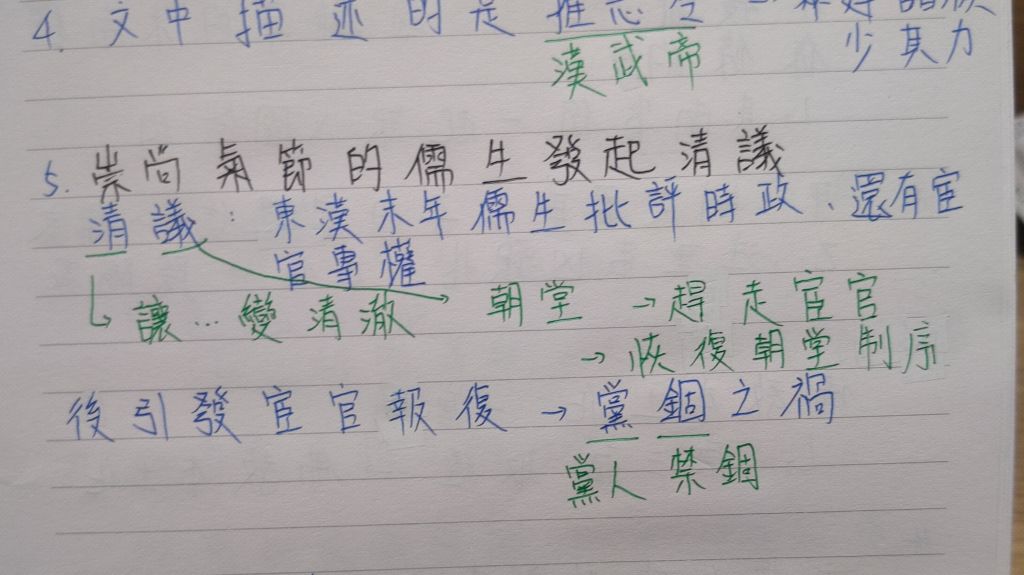 4. 文中描述的是推恩令→
漢武帝 少其力
5. 崇尚氣節的儒生發起清議
清議：東漢末年儒生批評時政、還有宦
官專權
↳讓…變清澈 朝堂 →趕走宦官
→恢復朝堂制序
後引發宦官報復→黨錮之禍
黨人 禁錮